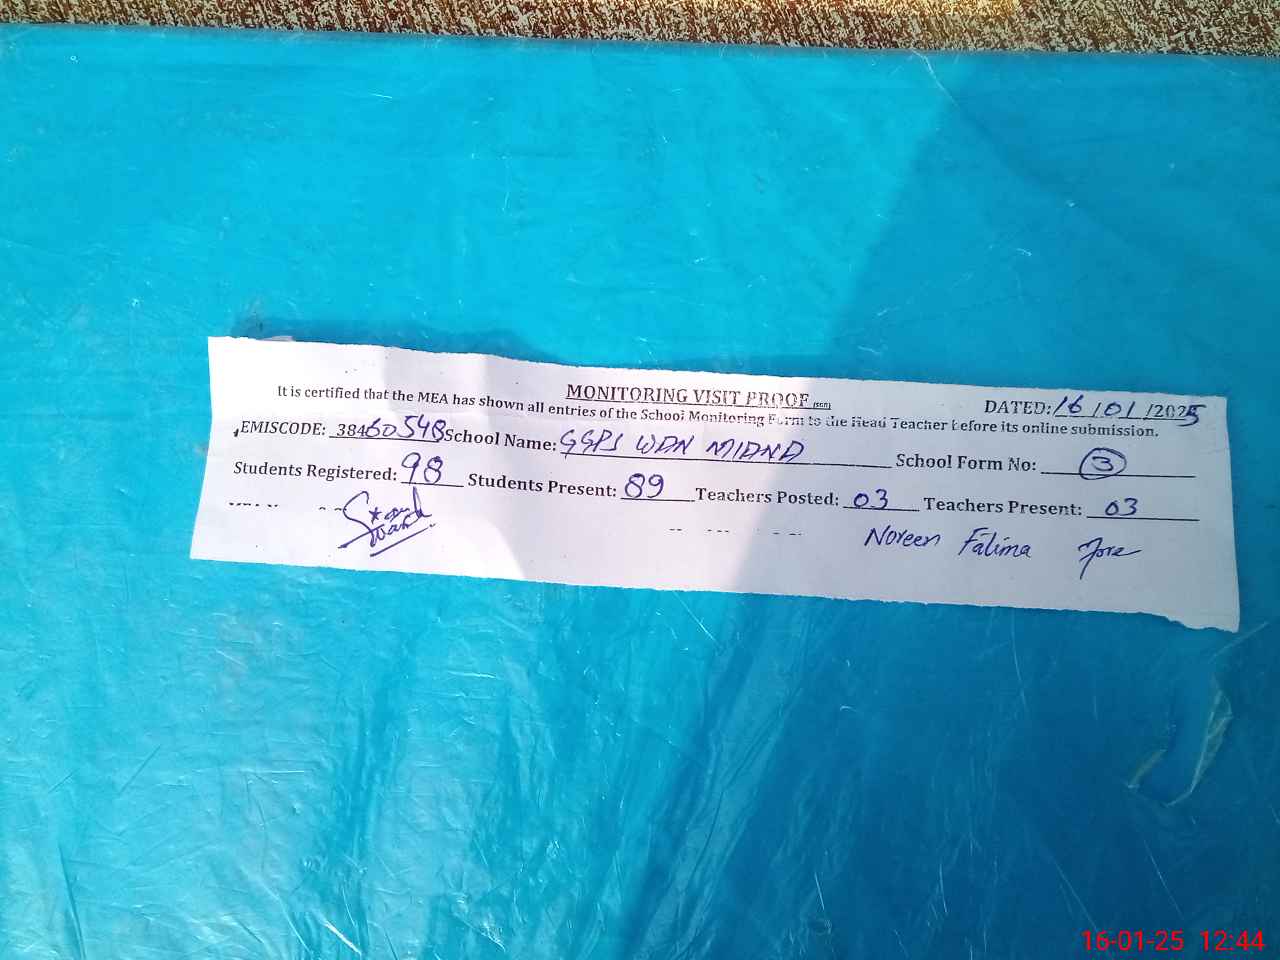 MONITORING VISIT PROOF (SGD)
DATED: 16/01/2025
It is certified that the MEA has shown all entries of the School Monitoring Form to the Head Teacher before its online submission.
EMISCODE: 38460548 School Name: GGPS WDN MIANA School Form No: 3
Students Registered: 98 Students Present: 89 Teachers Posted: 03 Teachers Present: 03
Noreen Fatima
16-01-25 12:44